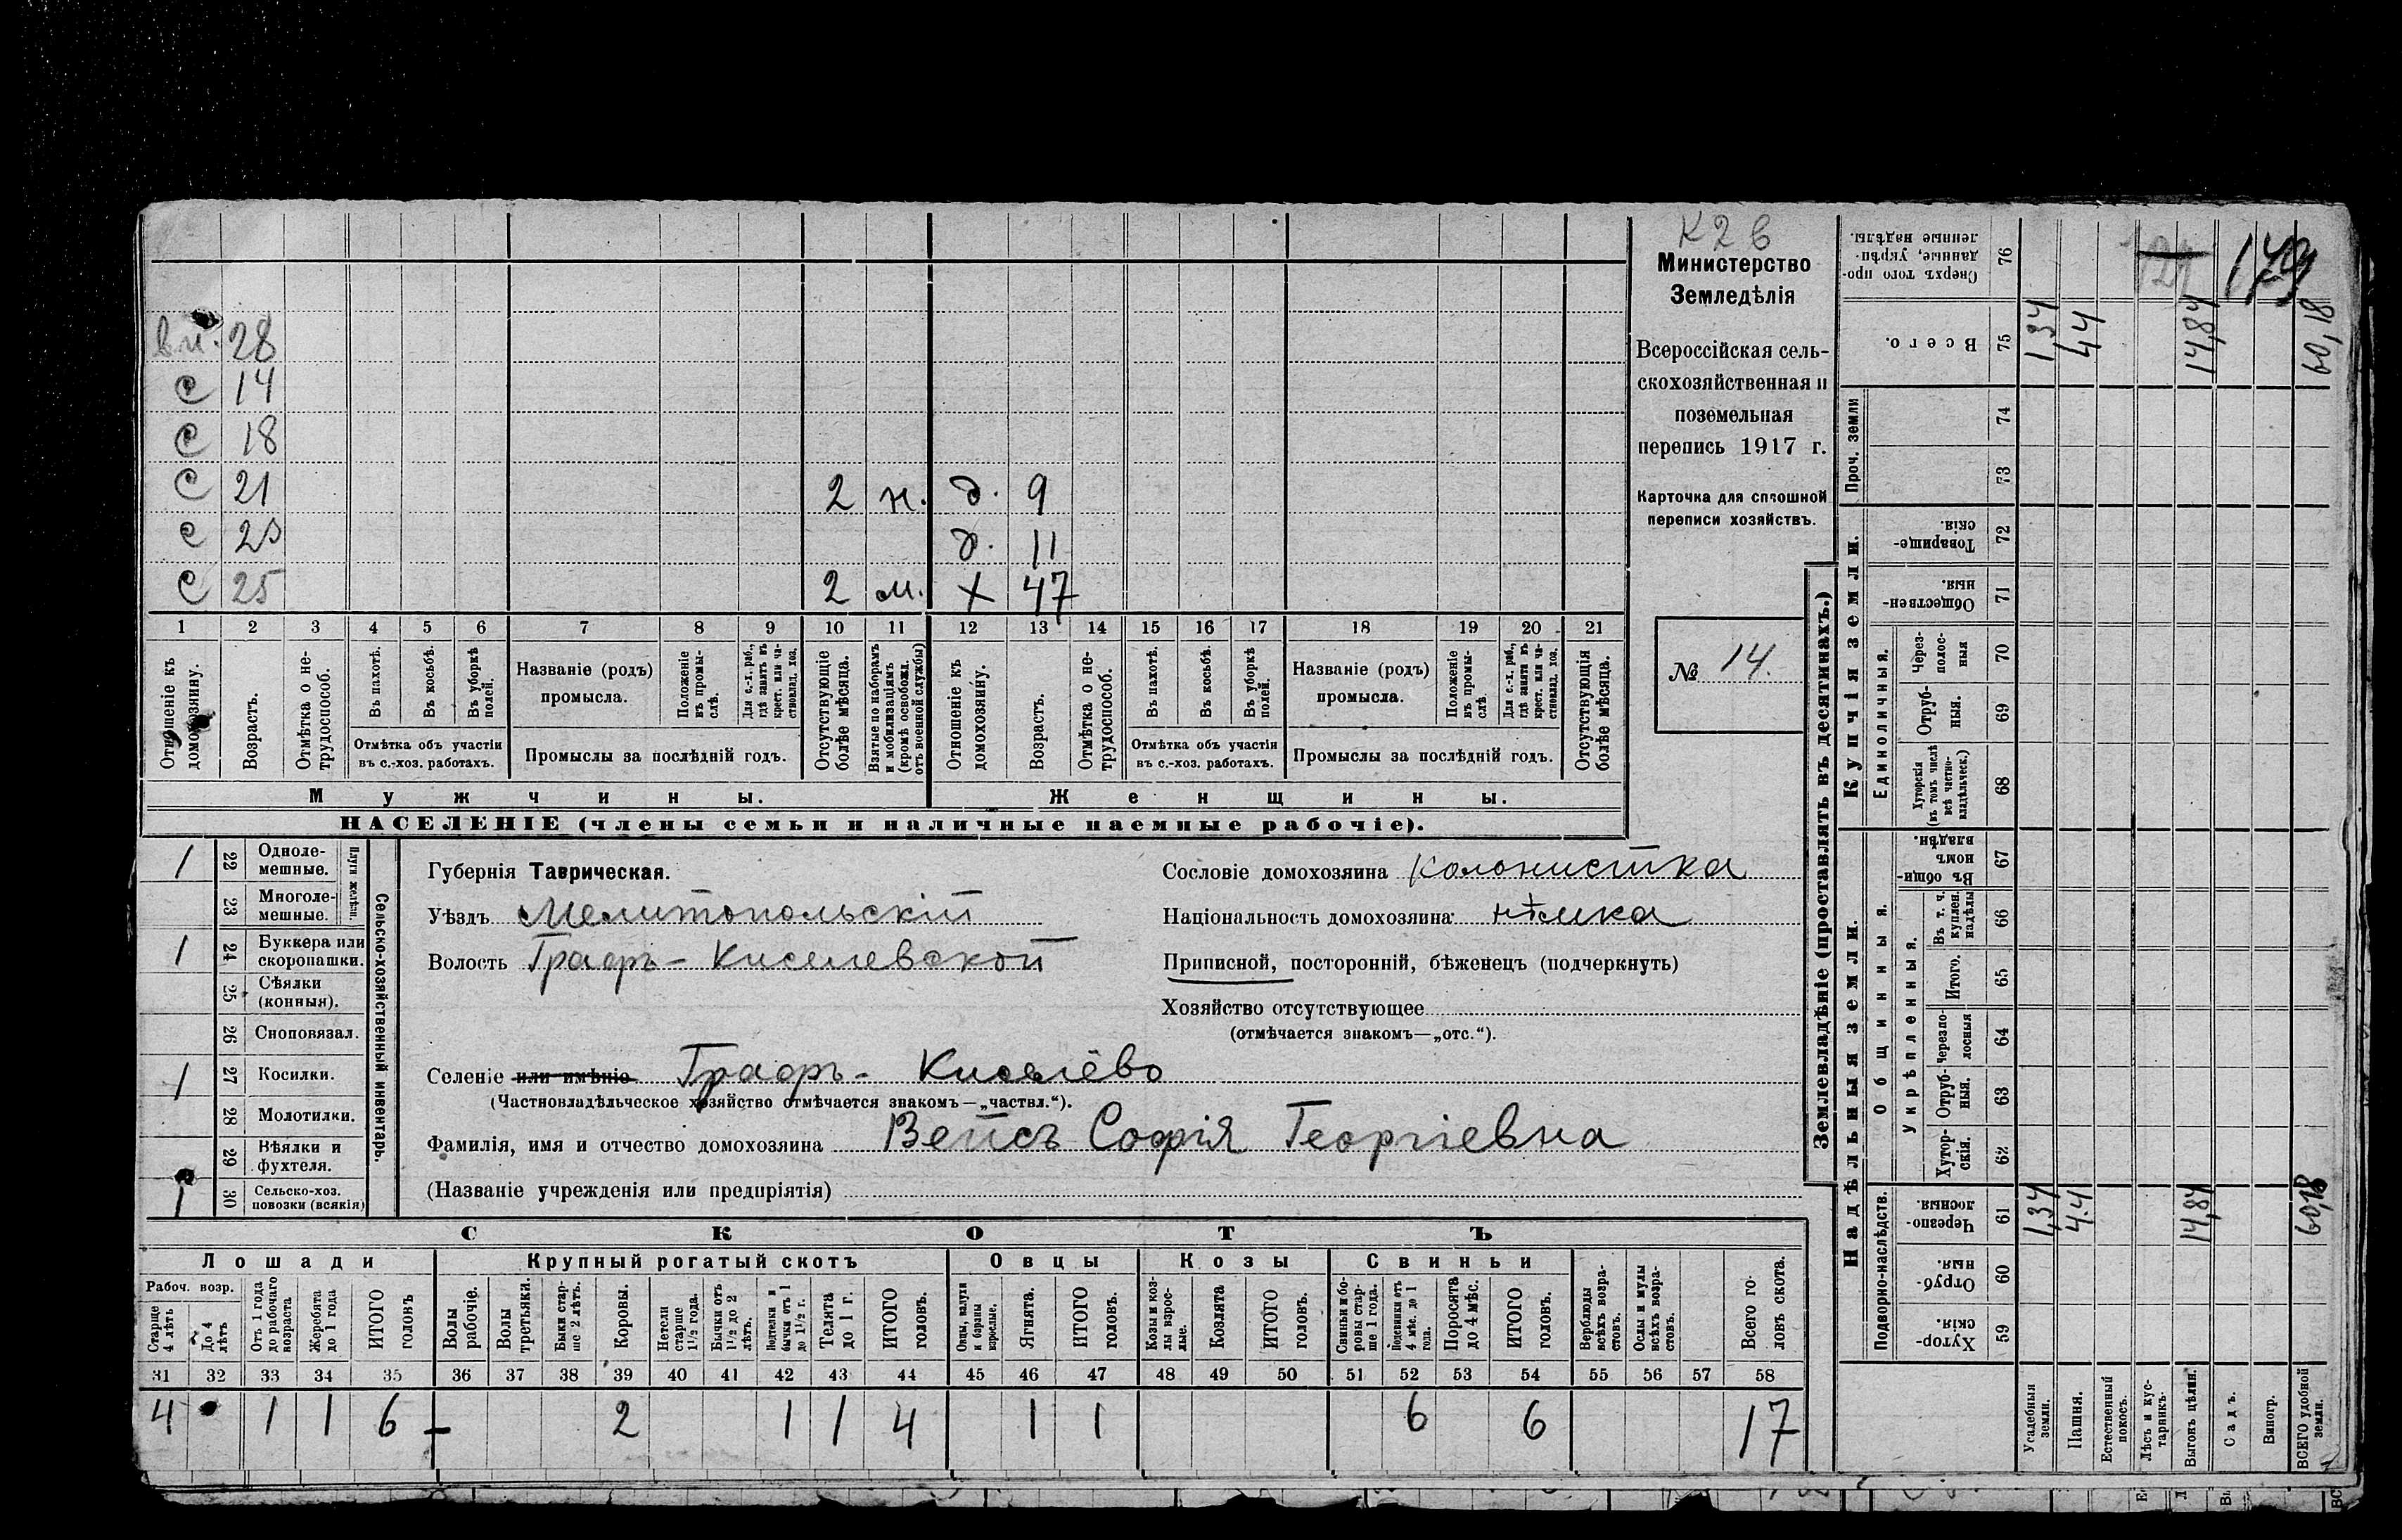 К 2 в
Министерство
Земледѣлія
Всероссійская сель-
скохозяйственная и
поземельная
перепись 1917 г.
Карточка для сплошной
переписи хозяйствъ.
№ 14.
28
С 14
С 18
С 21 2 н. д. 9
С 23 д. 11
С 25 2 м. х 47
1 2 3 4 5 6 7 8 9 10 11 12 13 14 15 16 17 18 19 20 21
Отношеніе къ домохозяину.
Возрастъ.
Отмѣтка о не-трудоспособ.
Въ пахотѣ.
Въ косьбѣ.
Въ уборкѣ полей.
Отмѣтка объ участіи
въ с.-хоз. работахъ.
Названіе (родъ)
промысла.
Положеніе въ промы-слѣ.
Для с.-х. раб., гдѣ занятъ въ крест. или ча-стновлад. хоз.
Промыслы за послѣдній годъ.
Отсутствующіе болѣе мѣсяца.
Взятые по наборамъ и мобилизаціямъ (кромѣ освобожд. отъ военной службы)
Отношеніе къ домохозяину.
Возрастъ.
Отмѣтка о не-трудоспособ.
Въ пахотѣ.
Въ косьбѣ.
Въ уборкѣ полей.
Отмѣтка объ участіи
въ с.-хоз. работахъ.
Названіе (родъ)
промысла.
Положеніе въ промы-слѣ.
Для с.-х. раб., гдѣ занята въ крест. или ча-стновлад. хоз.
Промыслы за послѣдній годъ.
Отсутствующія болѣе мѣсяца.
Мужчины. Женщины.
НАСЕЛЕНІЕ (члены семьи и наличные наемные рабочіе).
1 22 Одноле-мешные.
23 Многоле-мешные.
Плуги желѣзн.
1 24 Буккера или скоропашки.
25 Сѣялки (конныя).
26 Сноповязал.
1 27 Косилки.
28 Молотилки.
29 Вѣялки и фухтеля.
1 30 Сельско-хоз. повозки (всякія)
Сельско-хозяйственный инвентарь.
Губернія Таврическая.
Уѣздъ Мелитопольскій
Волость Графъ-Киселевской
Сословіе домохозяина колонистка
Національность домохозяина: нѣмка
Приписной, посторонній, бѣженецъ (подчеркнуть)
Хозяйство отсутствующее
(отмѣчается знакомъ—„отс.“).
Селеніе или имѣніе Графъ-Киселёво
(Частновладѣльческое хозяйство отмѣчается знакомъ—„частвл.“).
Фамилія, имя и отчество домохозяина Вейсъ Софія Георгіевна
(Названіе учрежденія или предпріятія)
СКОТЪ
Лошади Крупный рогатый скотъ Овцы Козы Свиньи
Рабоч. возр.
Старше 4 лѣтъ
До 4 лѣтъ
Отъ 1 года до рабочаго возраста
Жеребята до 1 года
ИТОГО головъ
Волы рабочіе.
Волы третьяки.
Быки стар-ше 2 лѣтъ.
Коровы.
Нетели старше 1½ года.
Бычки отъ 1½ до 2 лѣтъ.
Подтелки и бычки отъ 1 до 1½ г.
Телята до 1 г.
ИТОГО головъ.
Овцы, валухи и бараны взрослые.
Ягнята.
ИТОГО головъ.
Козы и коз-лы взрос-лые.
Козлята
ИТОГО головъ.
Свиньи и бо-ровы стар-ше 1 года.
Подсвинки отъ 4 мѣс. до 1 года.
Поросята до 4 мѣс.
ИТОГО головъ.
Верблюды всѣхъ возра-стовъ.
Ослы и мулы всѣхъ возра-стовъ.
Всего го-ловъ скота.
31 32 33 34 35 36 37 38 39 40 41 42 43 44 45 46 47 48 49 50 51 52 53 54 55 56 57 58
4 1 1 6 2 1 1 4 1 1 6 6 17
Землевладѣніе (проставлять въ десятинахъ.)
Купчія земли.
Проч. земли
Единоличныя.
Надѣльныя земли.
Общинныя.
Укрѣпленныя.
Подворно-наслѣдств.
Сверхъ того про-данные, укрѣп-ленные надѣлы. 76
Всего. 75
74
73
Товарище-скія. 72
Обществен-ныя. 71
Через-полос-ныя 70
Отруб-ныя. 69
Хуторскія (въ томъ числѣ всѣ частно-владѣльческ.) 68
Въ общи-номъ владѣн. 67
Въ т. ч. куплен. надѣлы 66
Итого. 65
Черезпо-лосныя 64
Отруб-ныя. 63
Хутор-скія. 62
Черезпо-лосныя. 61
Отруб-ныя. 60
Хутор-скія. 59
Усадебныя земли.
Пашня.
Естественный покосъ.
Лѣсъ и кус-тарникъ.
Выгонъ цѣлин.
Садъ.
Виногр.
ВСЕГО удобной земли.
121
179
1,34 44 14,84 60,18
1,34 44 14,84 60,18